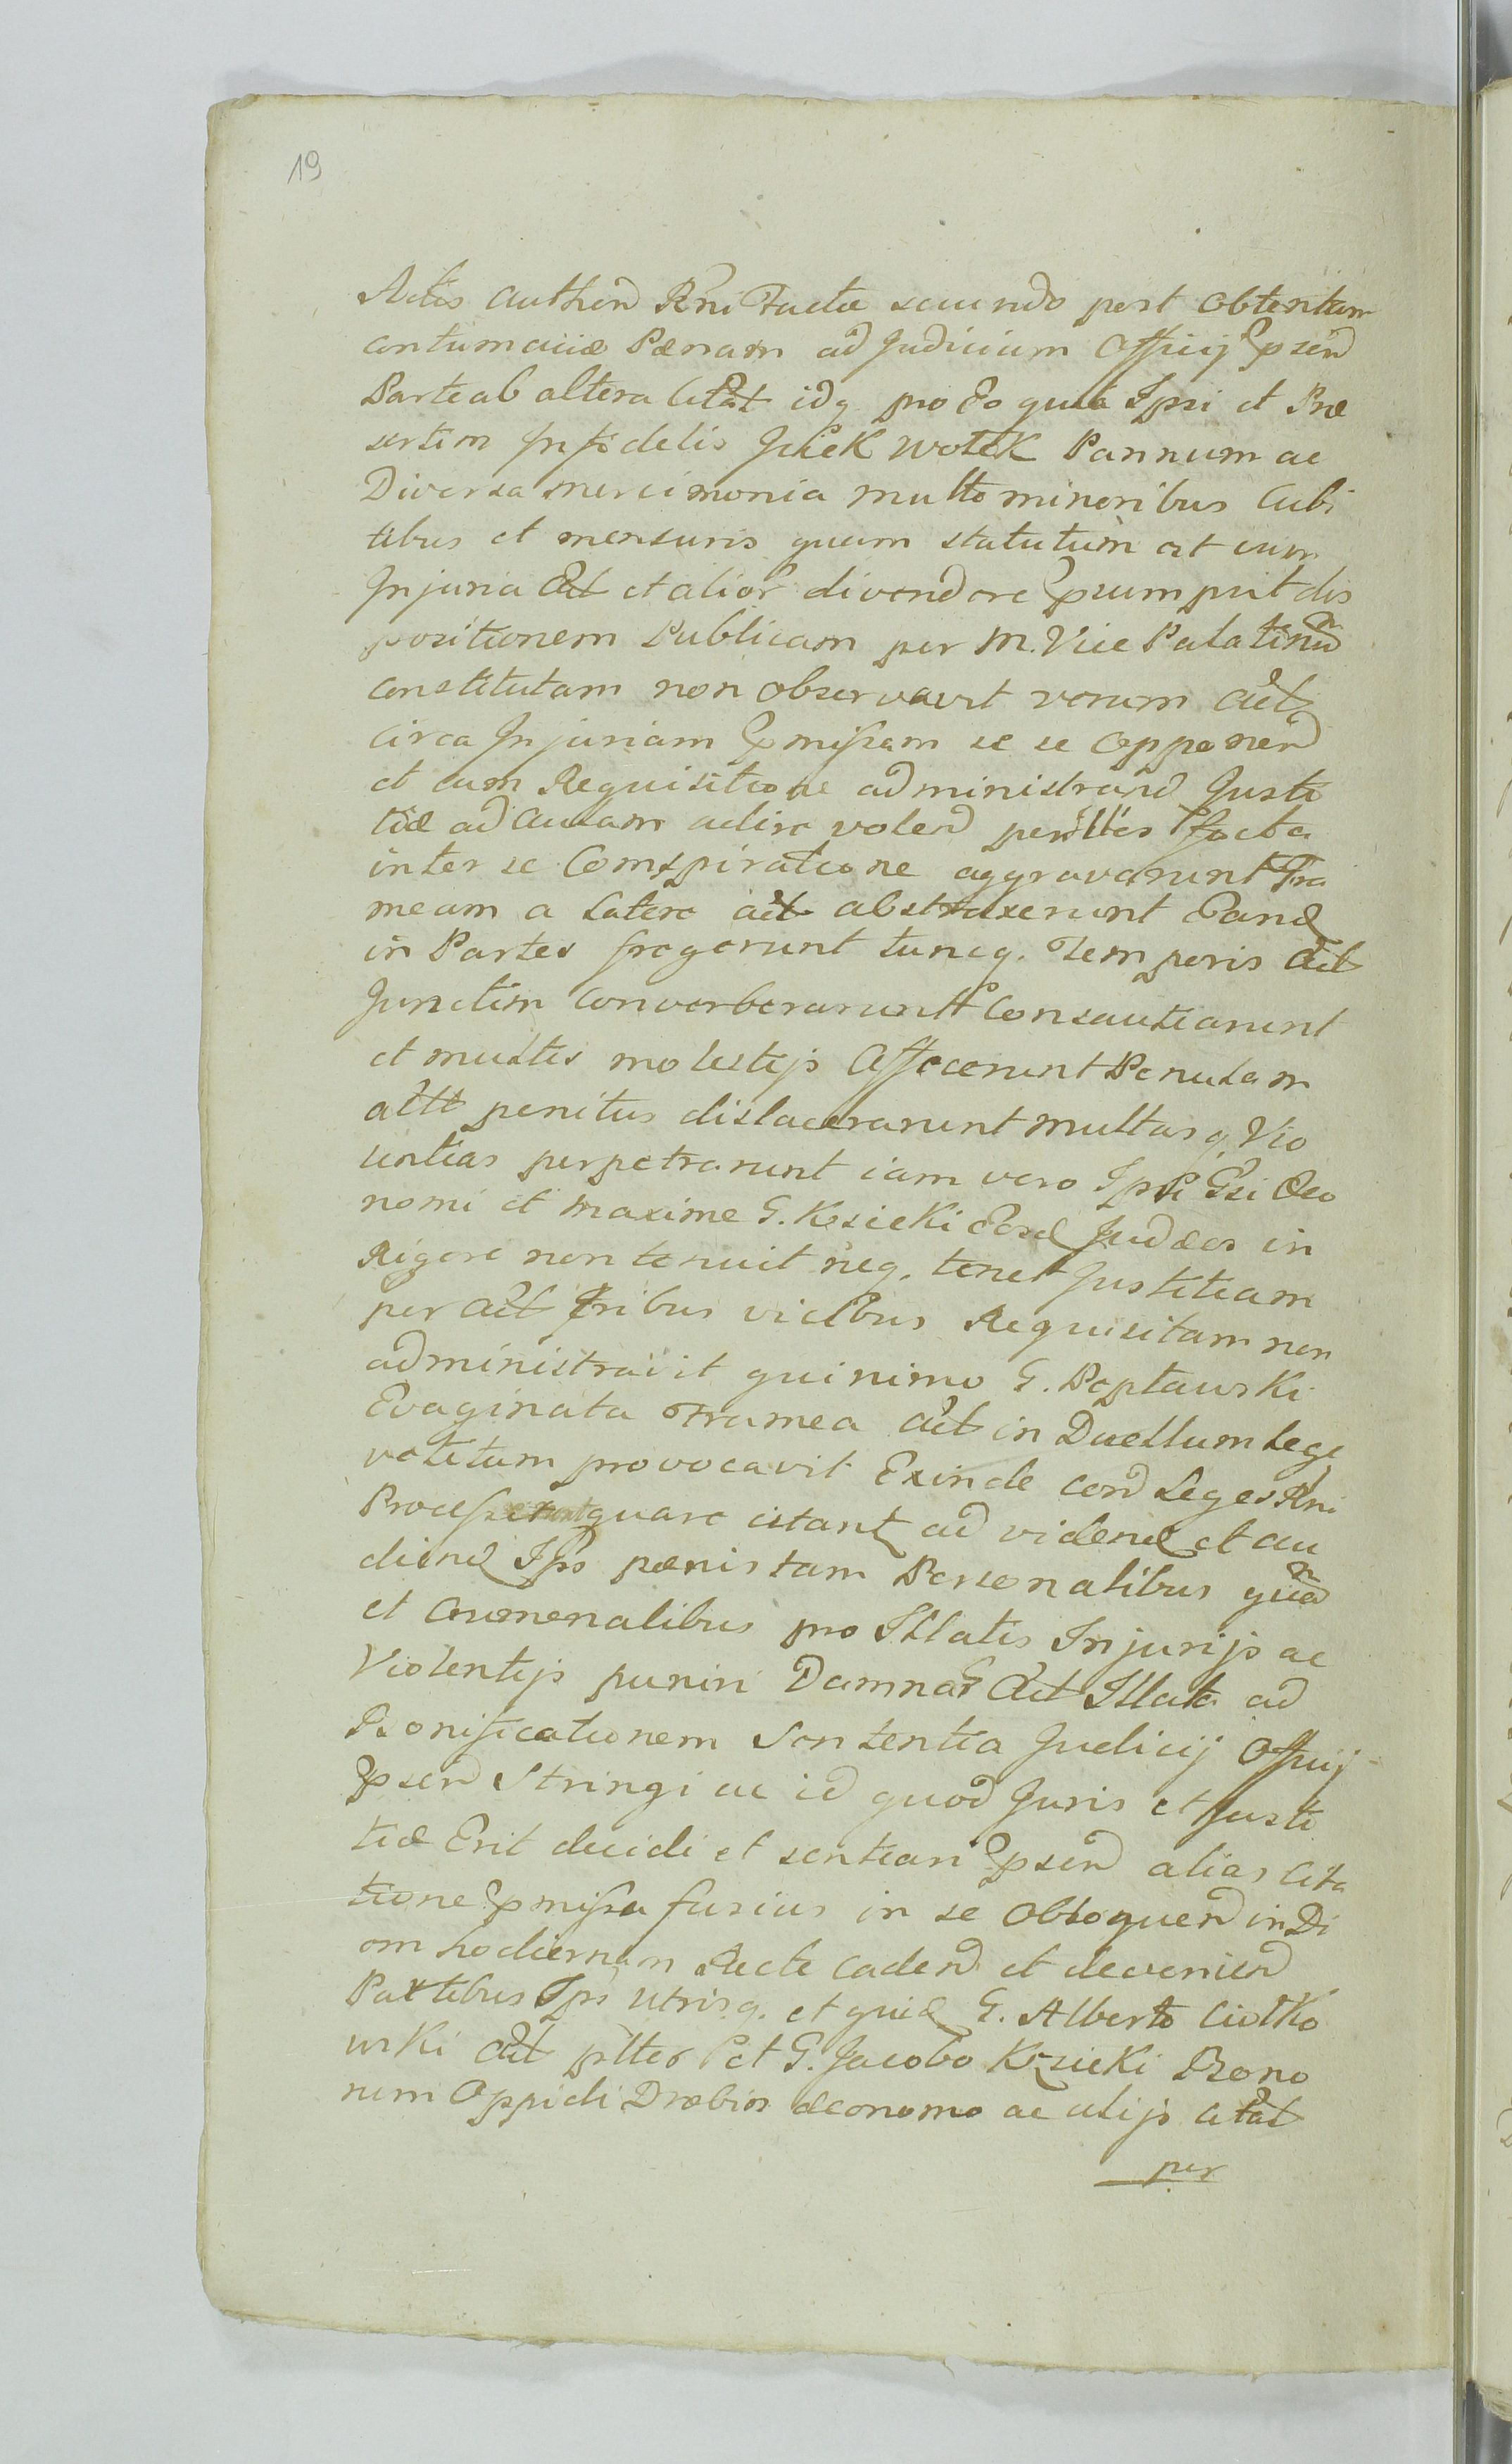 19
Actis Authen Rni Facta secundo post obtentam
contumaciæ Pænam ad Judicium Officij Ppsen
Parte ab altera Citat idq pro Eo quia Ipsi et Præ
sertim Infidelis Jcick Wolek Pannum ac
Diversa mercimonia multo minoribus Cubi
tibus et mensuris quam statutum est cum
Injuria Act et alior divendere Psumpsit dis
positionem Publicam per M. Vice Palatinu
constitutam non observavit verum Act
circa Injuriam Pmissam se se opponen
et cum Requisitione administrand Justi
tiæ ad Aulam adire volend per illos facta
inter se Conspiratione aggravarunt Fra
meam a Latere act abstraxerunt Eand
in Partes fregerunt tuncq. Temporis Act
Junctim Converberarunt Consauciarunt
et multis molestijs Affecerunt Penulam
actt penitus dislacerarunt multas q Vio
lentias perpetrarunt iam vero Ipsi Gsi Oeco
nomi et maxime G. Kzicki Eosd Judæos in
Rigore non tenuit neq. tenet Justitiam
per Act tribus vicibus Requisitam non
administravit quinimo G. Poplawski
Evaginata Framea Act in Duellum Lege
vetitum provocavit Exinde con Leges Rni
Processerunt quare citant ad vidend et au
diend Ipso pænis tam Personalibus quã
et Crumenalibus pro Illatis Injurijs ac
Violentijs puniri Damna Act Illata ad
Bonificationem Sententia Judicij Officij
Ppsen Stringi ac id quod Juris et Justi
tiæ Erit decidi et sentiari Ppsen alias Cita
tione Pmissa fusius in se Obloquen in Di
em hodiernum Recte caden et devenien
Partibus Ips utrisq. et quid G. Alberto Ciołko
wski Act pltter et G. Jacobo Kzicki Bono
rum Oppidi Drobin æconomo ac alijs Citat
per